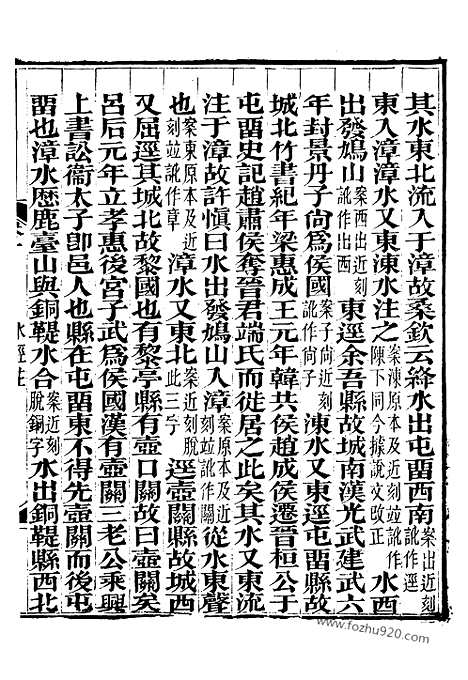 其水東北流入于漳故桑欽云絳水出屯畱西南案出近刻訛作逕
東入漳漳水又東涷水注之案涷原本及近刻竝訛作陳下同今據說文改正水西
出發鳩山案西出近刻訛作出西東逕余吾縣故城南漢光武建武六
年封景丹子尙爲侯國案子尙近刻訛作尙子涷水又東逕屯畱縣故
城北竹書紀年梁惠成王元年韓共侯趙成侯遷晉桓公于
屯畱史記趙肅侯奪晉君端氏而徙居之此矣其水又東流
注于漳故許愼曰水出發鳩山入漳案原本及近刻竝訛作關從水東聲
也案東原本及近刻竝訛作章漳水又東北案近刻脫此三字逕壺關縣故城西
又屈逕其城北故黎國也有黎亭縣有壺口關故曰壺關矣
呂后元年立孝惠後宮子武爲侯國漢有壺關三老公乘興
上書訟衞太子卽邑人也縣在屯畱東不得先壺關而後屯
畱也漳水歷鹿臺山與銅鞮水合案近刻脫銅字水出銅鞮縣西北
水經注
www.fozhu920.com